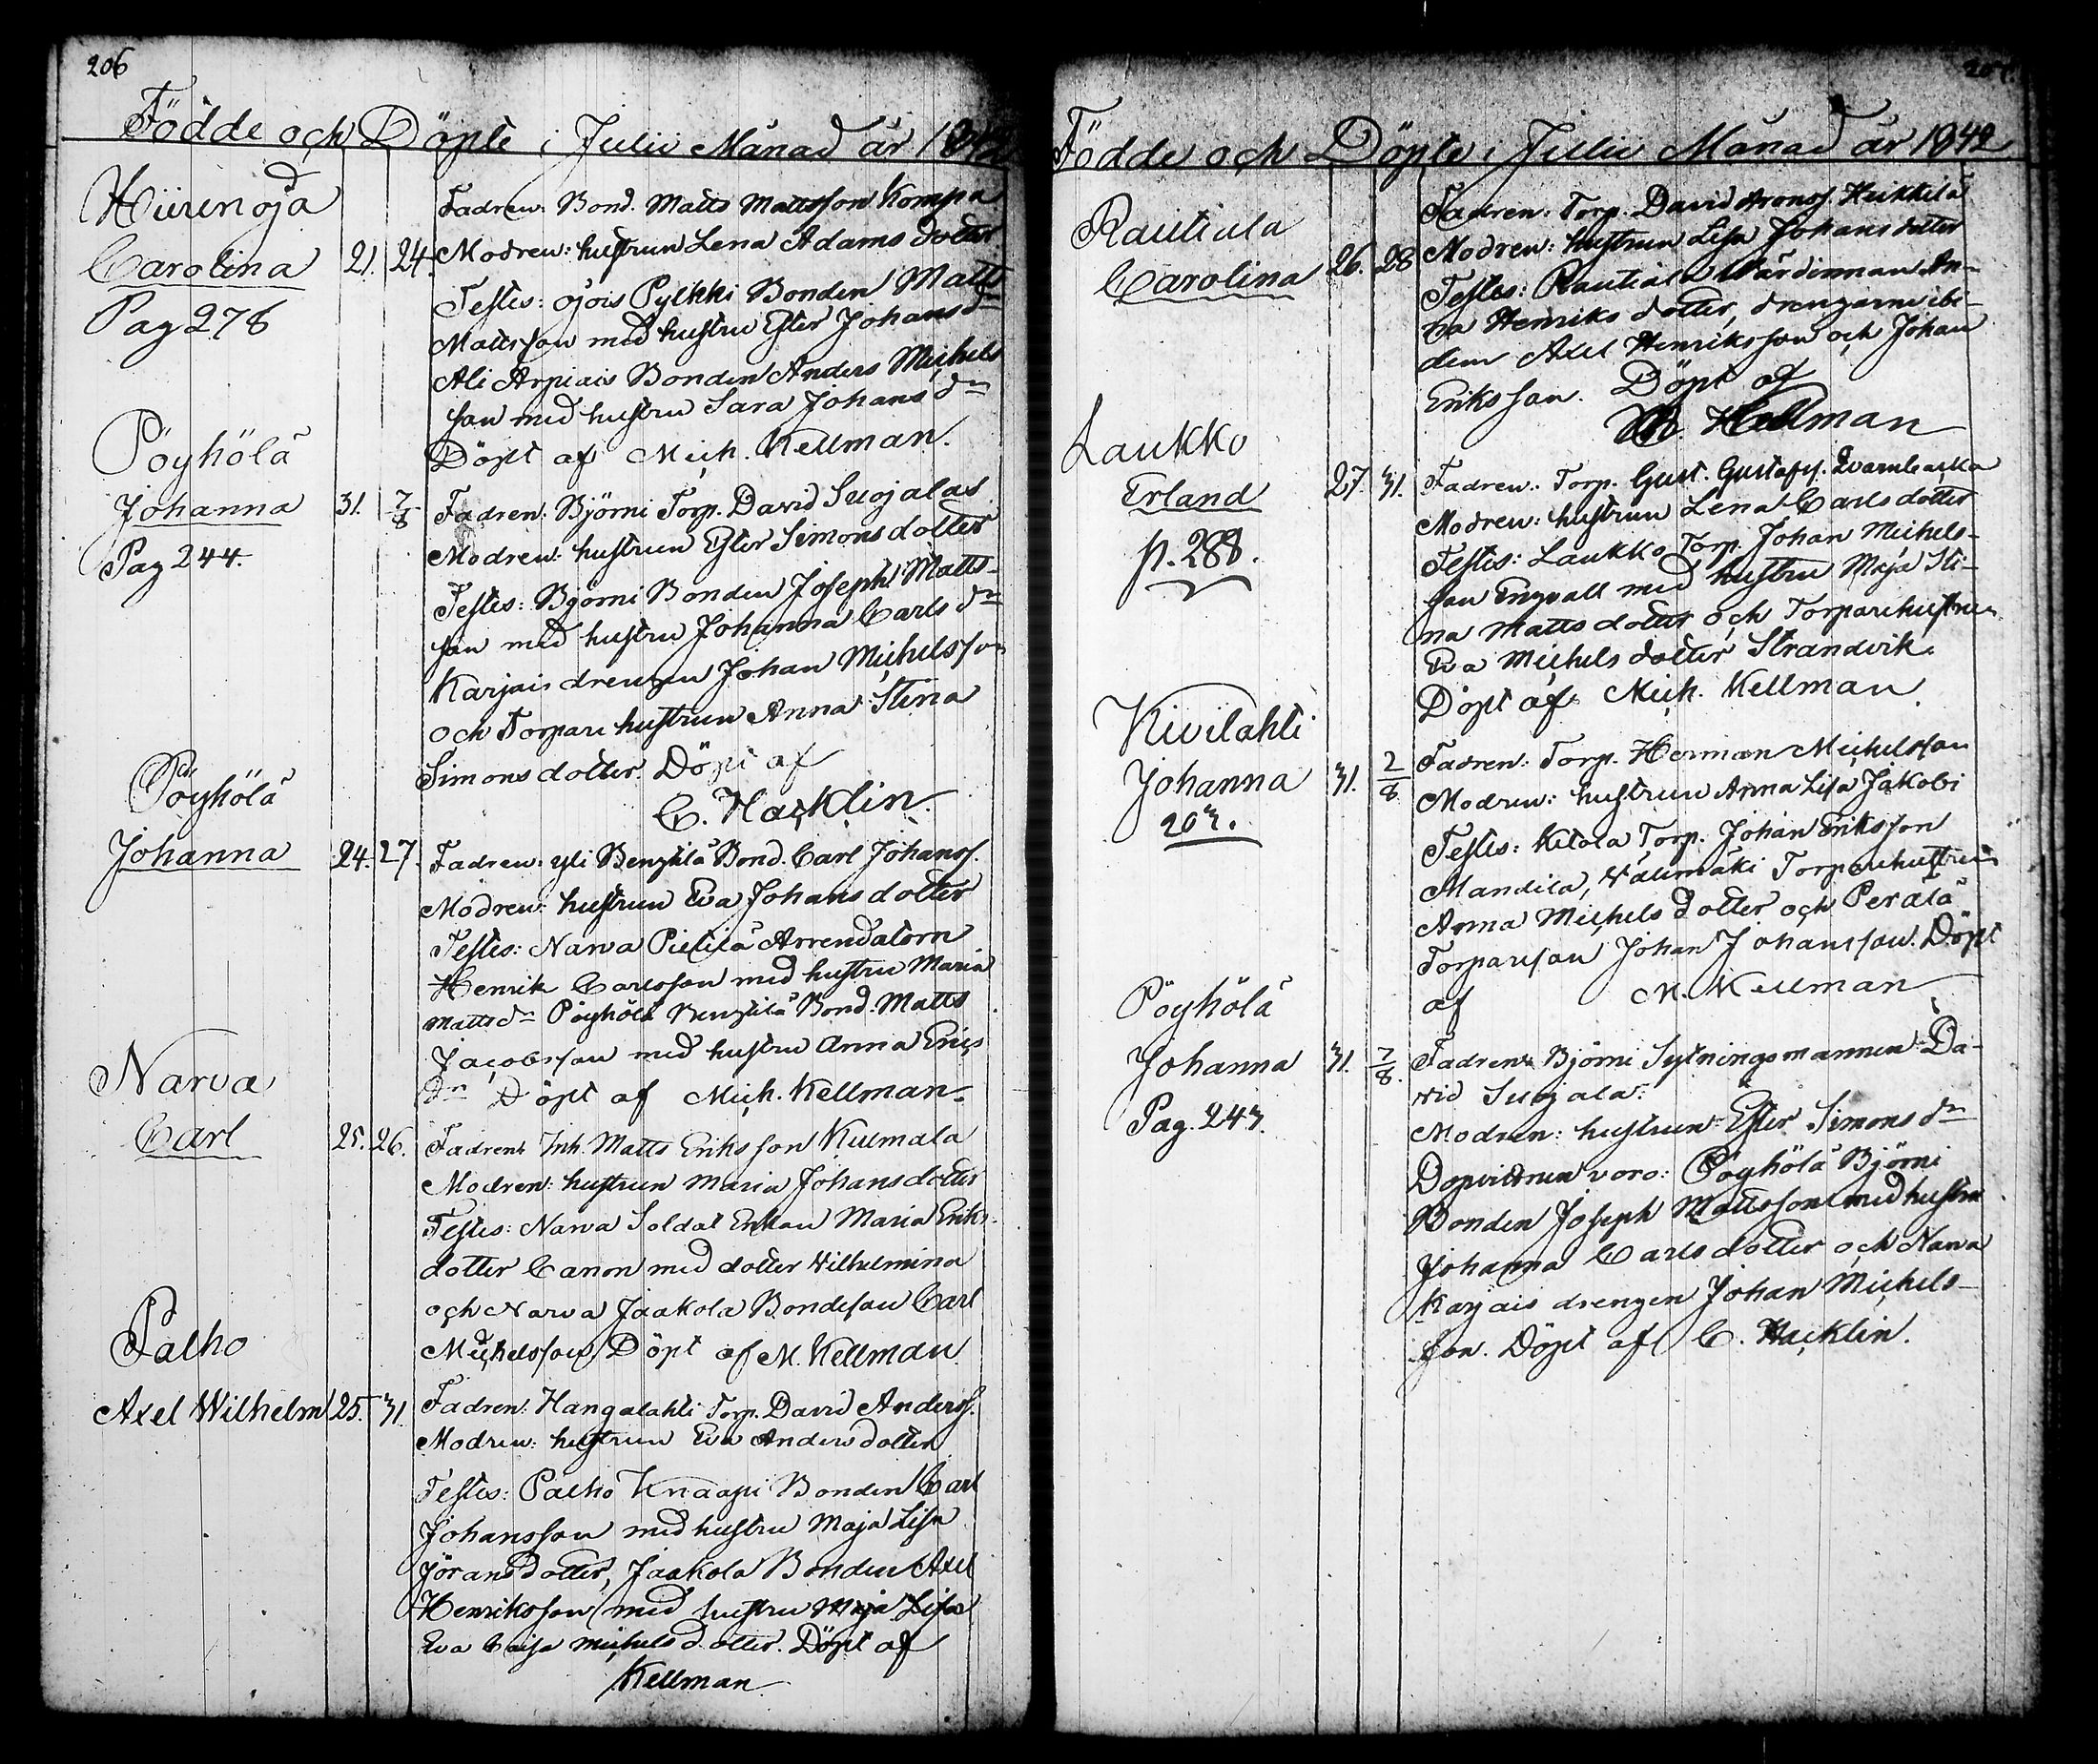 206
Födde och Döpte i Julii Månad år 1842
Hiirenoja
Carolina 21. 24.
Pag 278
Fadren: Bond. Matts Mattsson Kompa
Modren: hustrun Lena Adams dotter
Testes: Ojois Pylkki Bonden Matts
Mattsson med hustru Ester Johans dr
Ali Arpiais Bonden Anders Michels
son med hustru Sara Johans dr
Döpt af Mich. Kellman.
Pöyhölä
Johanna 31. 7/8
Pag 244.
Fadren: Björni Torp. David Suojalas
Modren: hustrun Ester Simons dotter
Testes: Björni Bonden Joseph Matts-
son med hustru Johanna Carls dr
Karjais drengen Johan Michelsson
och Torpare hustrun Anna Stina
Simons dotter. Döpt af
C. Hacklin.
Pöyhölä
Johanna 24. 27.
Fadren: Yli Bengtilä Bond. Carl Johanss.
Modren: hustrun Eva Johans dotter
Testes: Narva Pietilä Arrendatorn
Henrik Carlsson med hustru Maria
Matts dr Pöyhölä Bengtilä Bond. Matts
Jacobsson med hustru Anna Erics
dr Döpt af Mich. Kellman.
Narva
Carl 25. 26.
Fadren: Inh. Matts Eriksson Kulmala
Modren: hustrun Maria Johans dotter
Testes: Narva Soldat Enkan Maria Eriks
dotter Canon med dotter Wilhelmina
och Narva Jaakola Bondeson Carl
Michelsson Döpt af M. Kellman
Palho
Axel Wilhelm 25. 31.
Fadren: Hangalahti Torp. David Anderss.
Modren: hustrun Eva Anders dotter
Testes: Palho Knaapi Bonden Carl
Johansson med hustru Maja Lisa
Jörans dotter, Jaakola Bonden Axel
Henriksson med hustru Maja Lisa
Eva Caisa Michels dotter. Döpt af
Kellman
207.
Födde och Döpte i Julii Månad år 1842
Rautiala
Carolina 26. 28
Fadren: Torp. David Aronss. Heikkilä
Modren: hustrun Lisa Johans dotter
Testes: Rautiala Wärdinnan An-
na Henriks dotter, drengarne ibi-
dem Axel Henriksson och Johan
Eriksson. Döpt af
M. Kellman
Laukko
Erland 27. 31.
p. 288.
Fadren: Torp. Gust. Gustafss. Qvarnbacka
Modren: hustrun Lena Carls dotter
Testes: Laukko Torp. Johan Michels-
son Engvall med hustru Maja Sti-
na Matts dotter och Torpare hustrun
Eva Michels dotter Strandvik.
Döpt af Mich. Kellman
Kivilahti
Johanna 31. 2/8
203.
Fadren: Torp. Herman Michelsson
Modren: hustrun Anna Lisa Jakobi
Testes: Kitola Torp. Johan Eriksson
Mandila, Välimäki Torpare hustrun
Anna Michels dotter och Perälä
Torpareson Johan Johansson. Döpt
af M. Kellman
Pöyhölä
Johanna 31. 7/8.
Pag. 243.
Fadren: Björni Sytningsmannen Da-
vid Suojala:
Modren: hustrun Ester Simons dr
Dopvittnen voro: Pöyhölä Björni
Bonden Joseph Mattsson med hustru
Johanna Carls dotter och Narva
Karjais drengen Johan Michels-
son. Döpt af C. Hacklin.